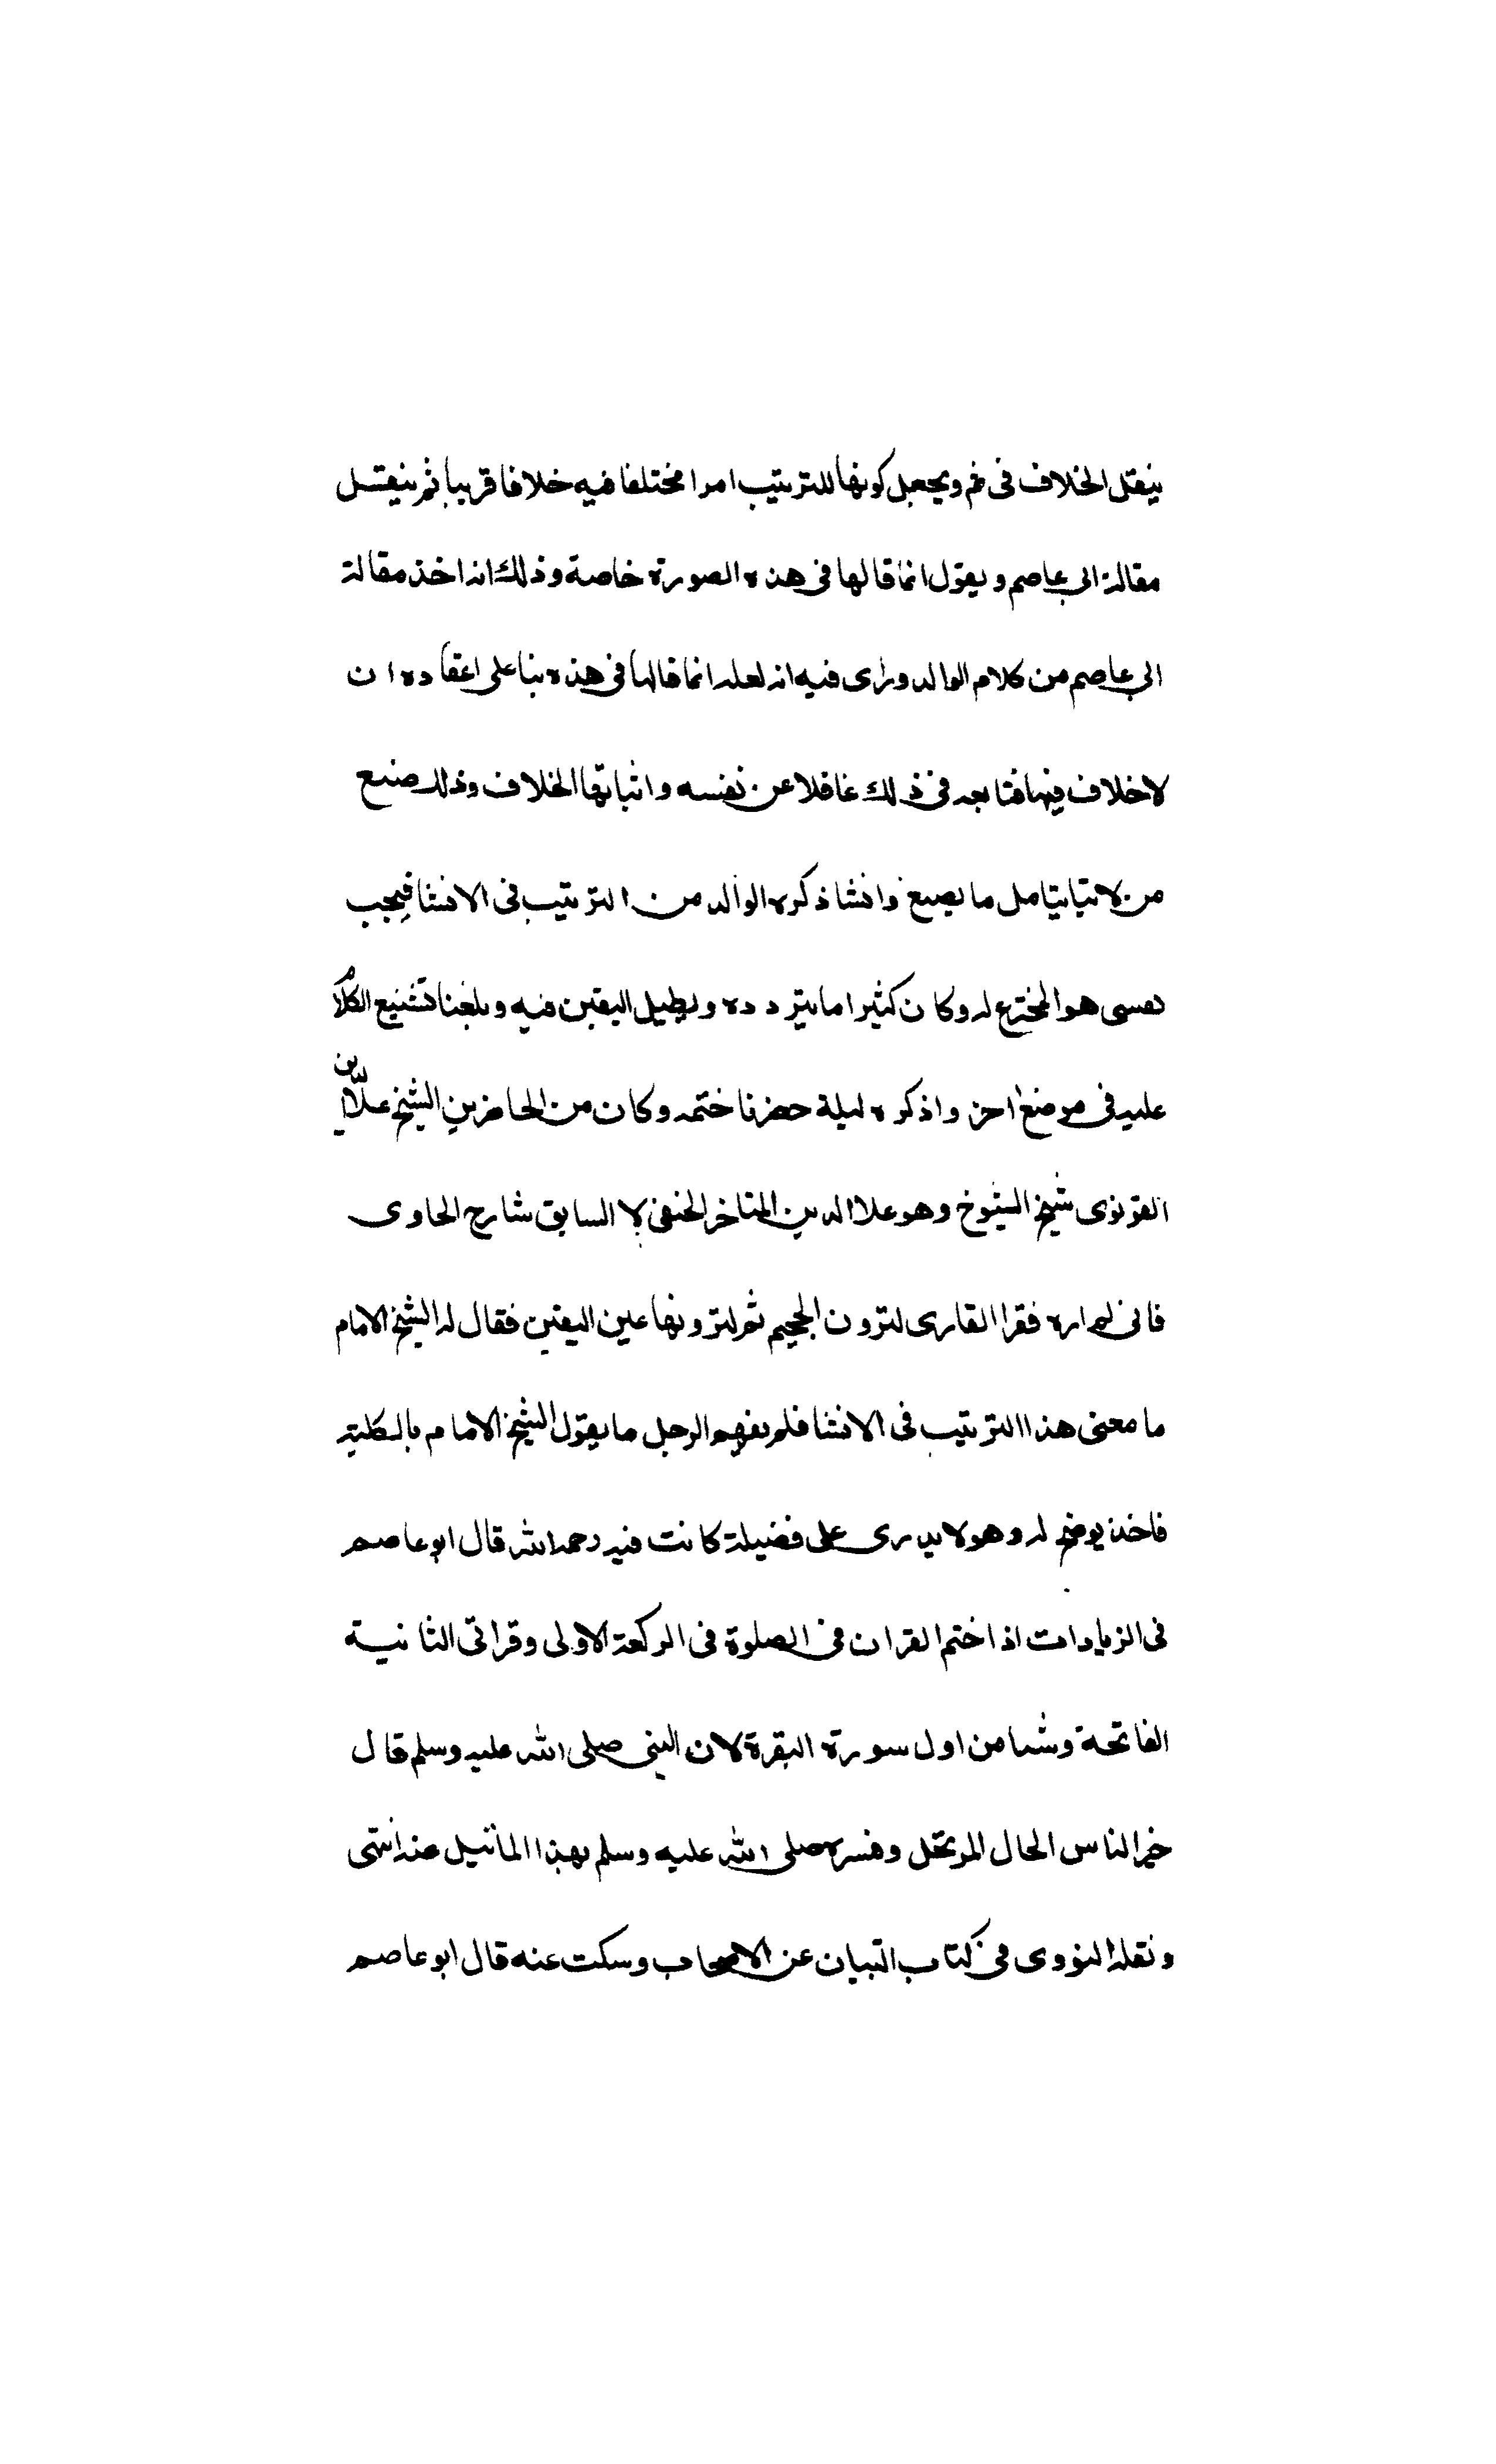 ينقل الخلاف فى ثم ويجعل كونها للترتيب امرا مختلفا فيه خلافا قريبا ثم ينقل
مقالة ابى عاصم ويقول انما قالها فى هذه الصورة خاصة وذلك انه اخذ مقالة
ابى عاصم من كلام الوالد وراى فيه انه لعله انما قالها فى هذه بنا على اعتقاده ان
لا خلاف فيها فتابعه فى ذلك غافلا عن نفسه واثباتها الخلاف وذلك صنع
من لا يتامل ما يصنع وانشا ذكره الوالد من الترتيب فى الانشا فيجب
نفسى هو المخترع له وكان كثيرا ما يتردده ويطيل اليقين فيه ويلغنا تشنيع الكلام
عليه فى موضع اخر واذكره ليلة حضرنا ختمه وكان من الحاضرين الشيخ علاالدين
القونوى شيخ الشيوخ وهو علا الدين المتاخر الحنفى لا السابق شارح الحاوى
فانى لم اره فقرا القارى لترون الجحيم ثم لترونها عين اليقين فقال له الشيخ الامام
ما معنى هذا الترتيب فى الانشا فلم يفهم الرجل ما يقول الشيخ الامام بالكلية
فاخذ يوضح له وهو لا يدرى على فضيلة كانت فيه رحمه الله قال ابو عاصم
فى الزيادات اذا ختم القران فى الصلوة فى الركعة الاولى وقرا فى الثانية
الفاتحة وشيا من اول سورة البقرة لان النبى صلى الله عليه وسلم قال
خير الناس الحال المرتحل وفسره صلى الله عليه وسلم بهذا المانيل عنه انتهى
ونقله النووى فى كتاب التبيان عن الاصحاب وسكت عنه قال ابو عاصم